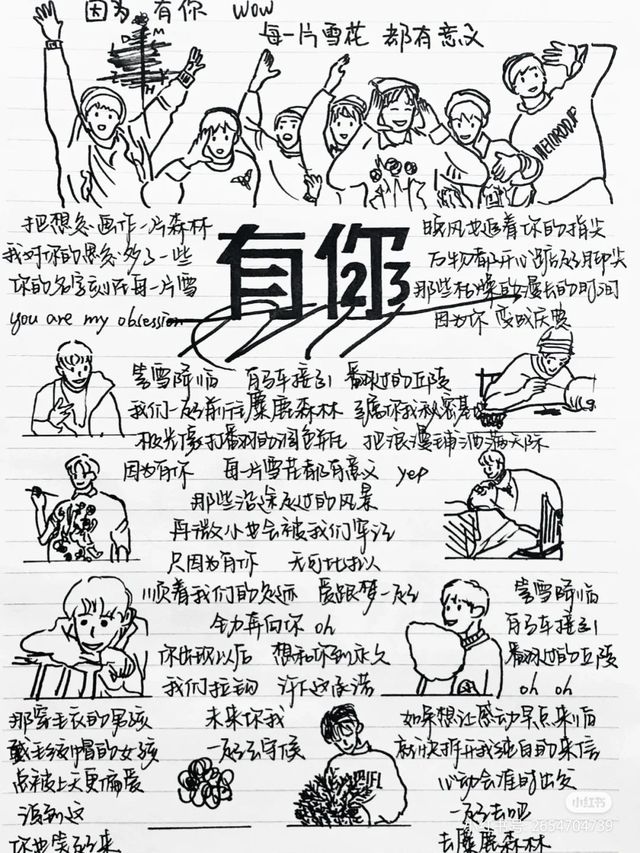 因为 有你 wow
每一片雪花 都有意义
把想象画作一片森林
我对你的思念多了一些
你的名字刻在每一片雪
you are my obsession
有你
23
晚风也追着你的指尖
万物都开心踮起脚尖
那些枯燥的漫长的时间
因为你 变成庆典
当雪降临 有马车接引 翻过的丘陵
我们一起前往麋鹿森林
极光 把浪漫铺洒满天际
因为有你 每一片雪花都有意义 yep
那些沿途疾过的风景
再微小也会被我们牢记
只因为有你 无可比拟
顺着我们的足迹 爱跟梦一起
全力奔向你 oh
你出现以后 想和你到永久
我们拉钩 许下这承诺
当雪降临
有马车接引
翻过的丘陵
oh oh
那穿毛衣的男孩
戴毛绒帽的女孩
点被上天更偏爱
派到这
你也笑起来
未来你我
一起去守候
FIFL
如果想让感动早点来临
就快拆开我纯白的来信
心动会准时出发
一起去吧
去麋鹿森林
小红书
2654704739